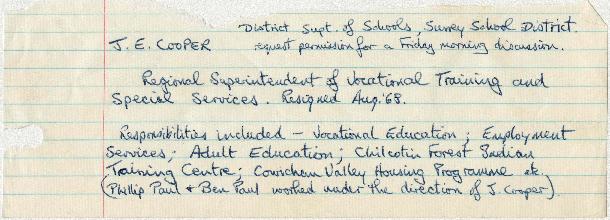 District Supt. of Schools, Surrey School District.
J. E. COOPER request permission for a Friday morning discussion.
Regional Superintendent of Vocational Training and
Special Services. Resigned Aug. '68.
Responsibilities included - Vocational Education; Employment
Services; Adult Education; Chilcotin Forest Indian
Training Centre; Cowichan Valley Housing Programme etc.
(Phillip Paul & Ben Paul worked under the direction of J. Cooper).